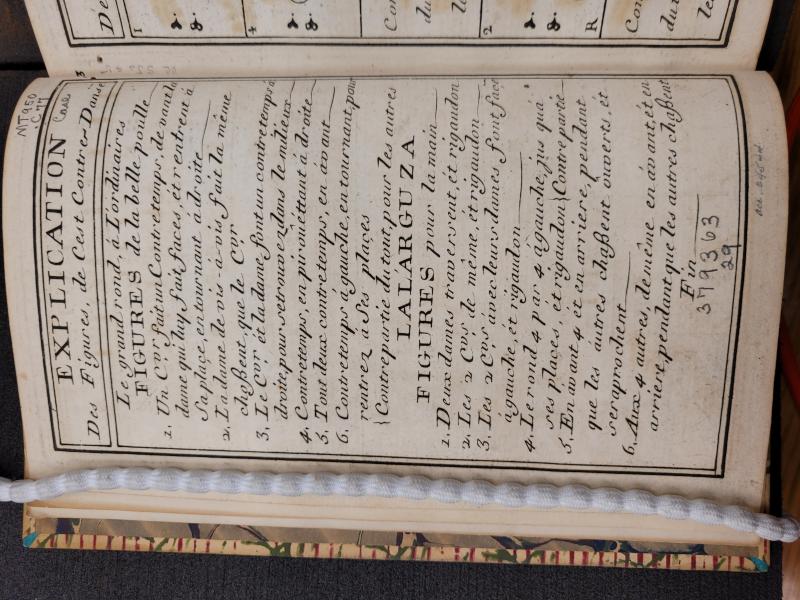 MT950
.C77
Case
EXPLICATION
Des Figures, de C'est Contres-Danses
Le grand rond, à L'ordinaires
FIGURES de la belle pouille
1. Un Cvr. fait un Contretemps, de vant la
dame qui luy fait faces, et rentrent à
Sa place, en tournant à droite
2. La dame de vis-à-vis fait la même
chaßent, que le Cvr
3. Le Cvr et la dame, font un contretemps à
droite, pour se trouver dans le milieux
4. Contretemps, en pirouëttant à droite
5. Tout deux contretemps, en avant
6. Contretemps à gauche, en tournant, pour
rentrez à Ses places
{Contrepartie du tout, pour les autres
LALARGUZA
FIGURES pour la main
1. Deux dames traverrent, ét rigaudon
2. Les 2 Cvrs de même, ét rigaudon
3. Les 2 Cvrs avec leurs dames font face
à gauche, et rigaudon
4. Le rond 4 par 4 à gauche, jus qu'á
ses places, et rigaudon {Contrepartie
5. En avant 4 ét en arriere, pendant
que les autres chaßent ouverts, ét
seraprochent
6. Aux 4 autres, de même en avant, ét en
arriere, pendant que les autres chaßent
Fin
379363
29
D'e
1
4
2
R
Con
du
le